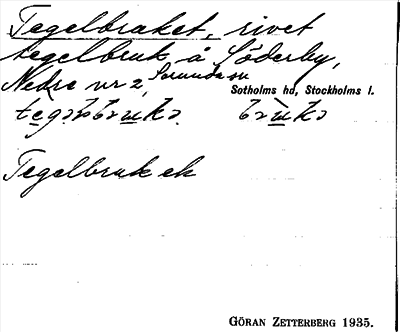 Tegelbruket, rivet
tegelbruk å Söderby,
Nedre nr 2, Sorunda sn
Sotholms hd, Stockholms l.
Tegelbruk ek
GÖRAN ZETTERBERG 1935.